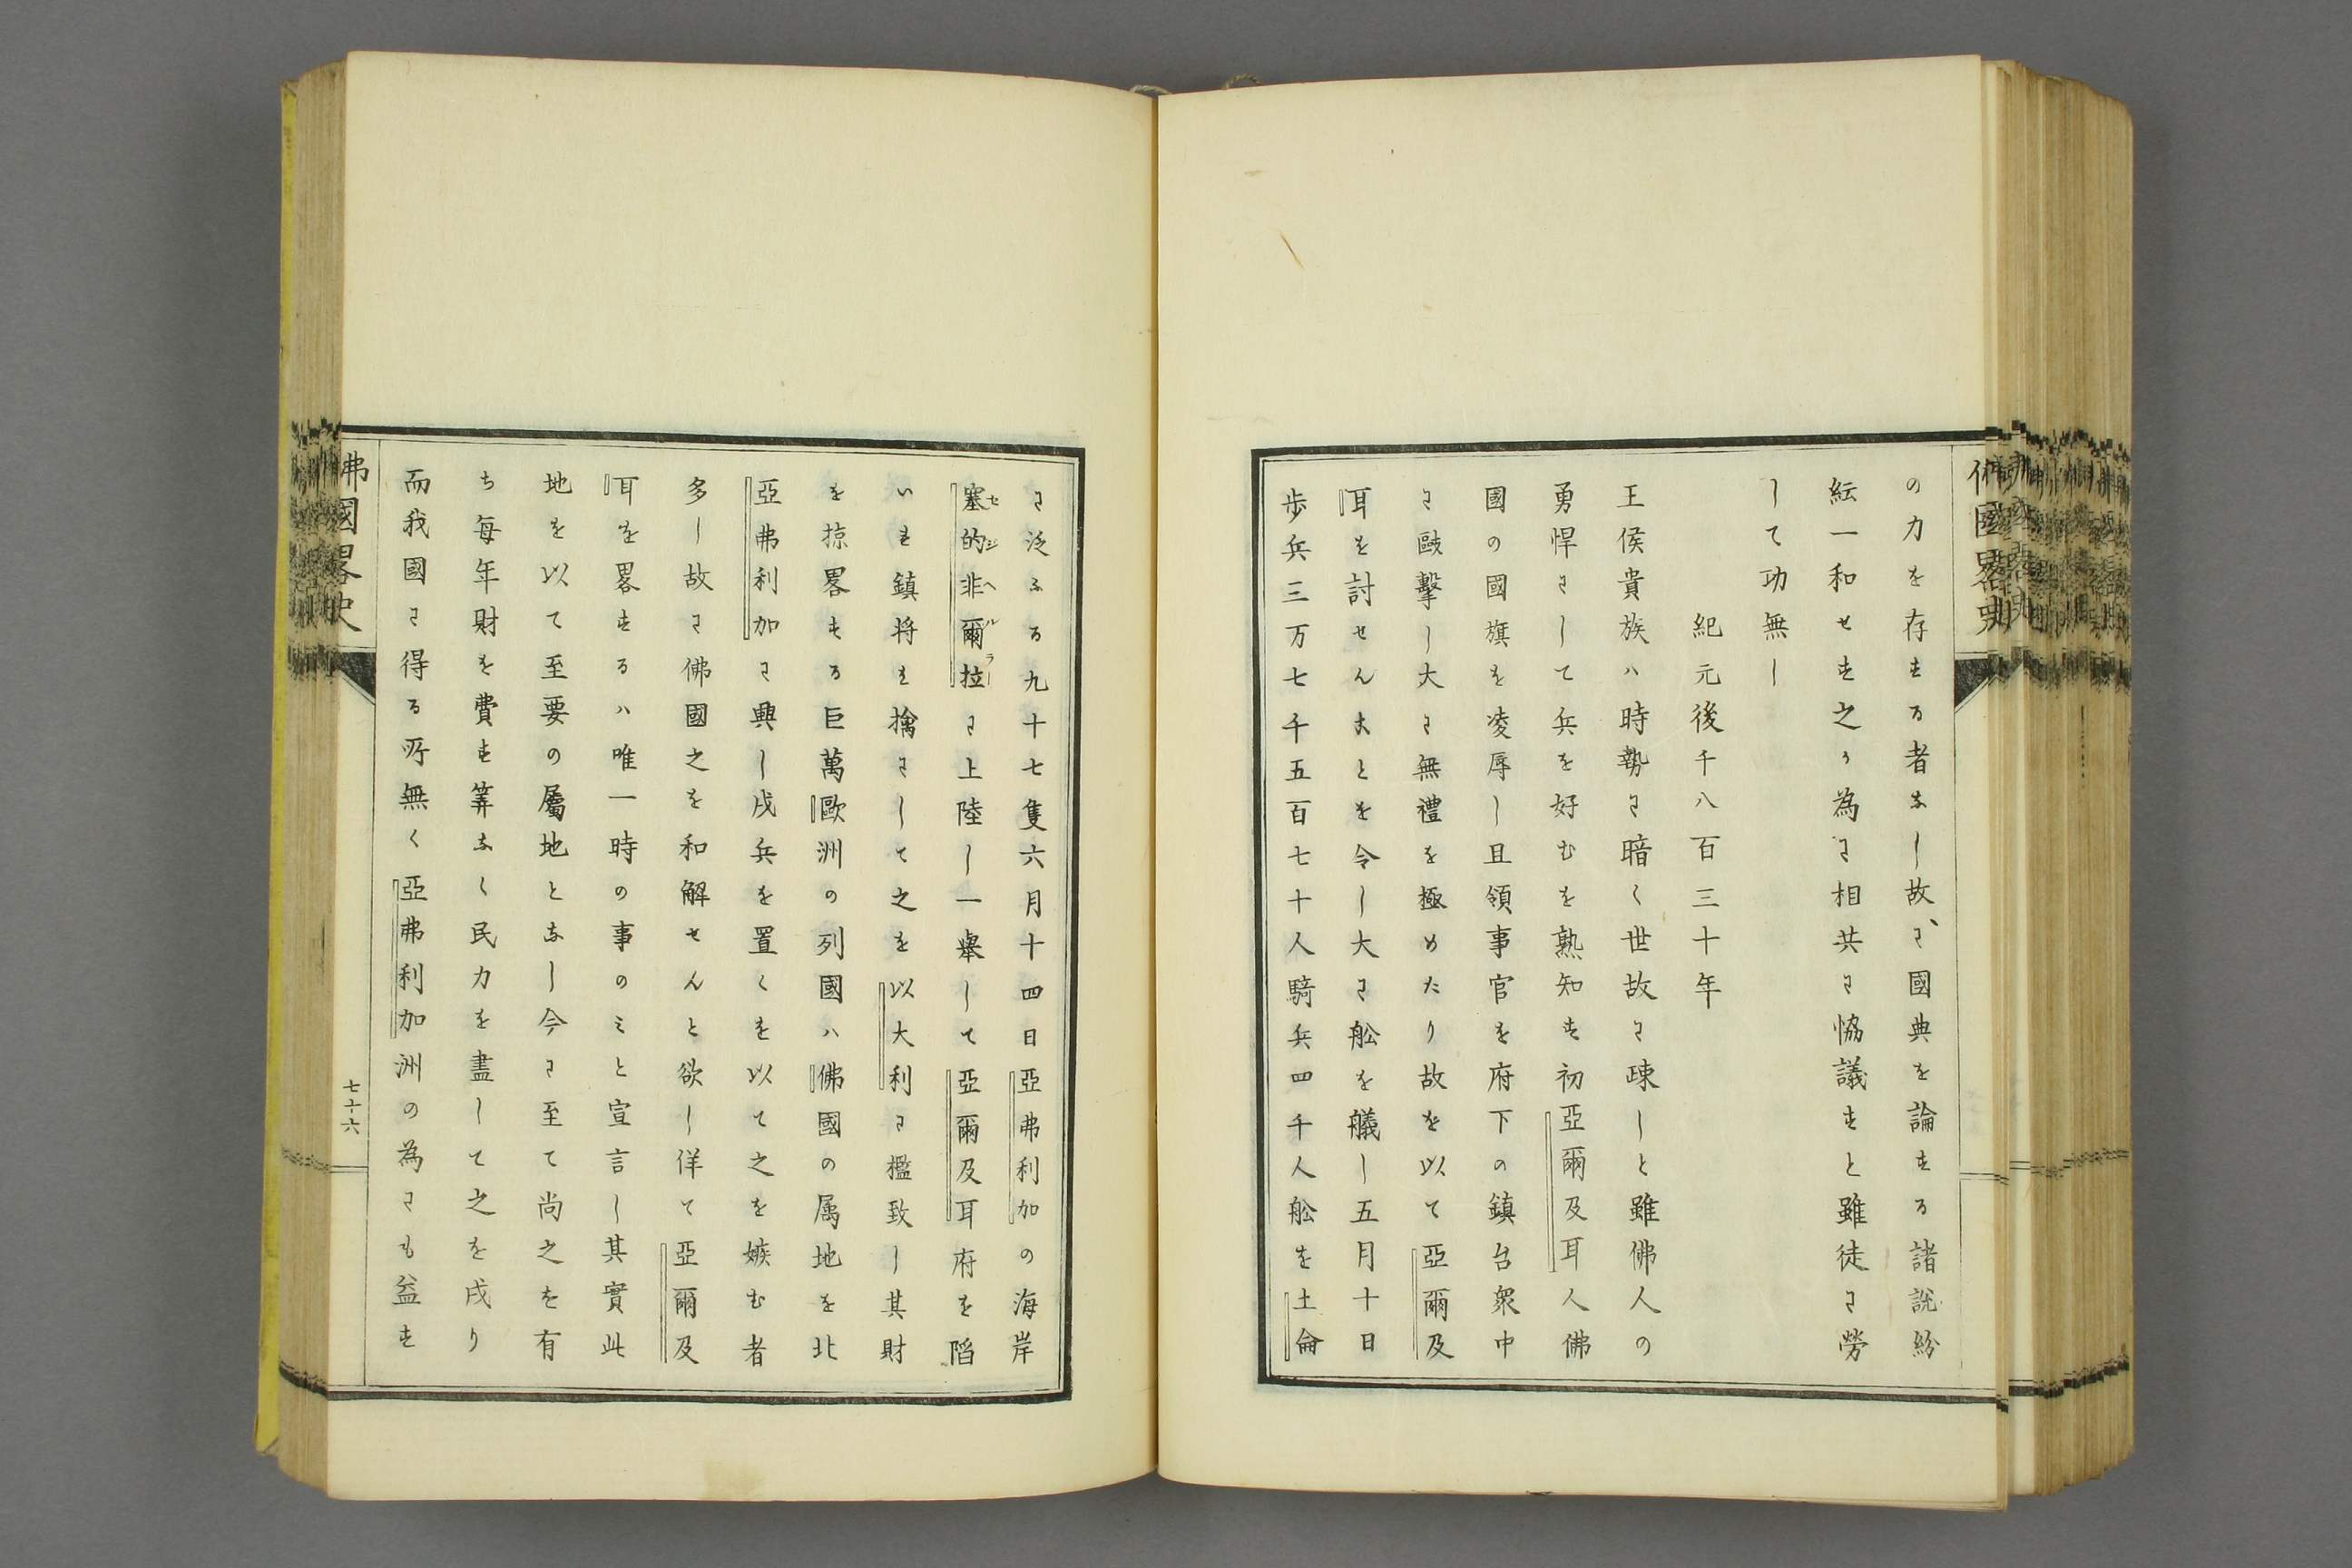 の力を存する者なし故に國典を論する諸説紛
紜一和せす之か為に相共に恊議すと雖徒に勞
して功無し
紀元後千八百三十年
王侯貴族ハ時勢に暗く世故に疎しと雖佛人の
勇悍にして兵を好むを熟知す初亞爾及耳人佛
國の國旗を凌辱し且領事官を府下の鎮台衆中
に毆擊し大に無禮を極めたり故を以て亞爾及
耳を討せんまとを令し大に舩を艤し五月十日
歩兵三万七千五百七十人騎兵四千人舩を土侖
に泛ふる九十七隻六月十四日亞弗利加の海岸
塞的非爾拉に上陸し一擧して亞爾及耳府を䧟
セジヘルラー
いれ鎮将を擒にして之を以大利に檻致し其財
を掠畧する巨萬歐洲の列國ハ佛國の属地を北
亞弗利加に興し戍兵を置くを以て之を嫉む者
多し故に佛國之を和解せんと欲し佯て亞爾及
耳を畧するハ唯一時の事のミと宣言し其實此
地を以て至要の屬地となし今に至て尚之を有
ち毎年財を費す筭なく民力を盡して之を戍り
而我國に得る所無く亞弗利加洲の為にも益す
弗國畧史
七十六